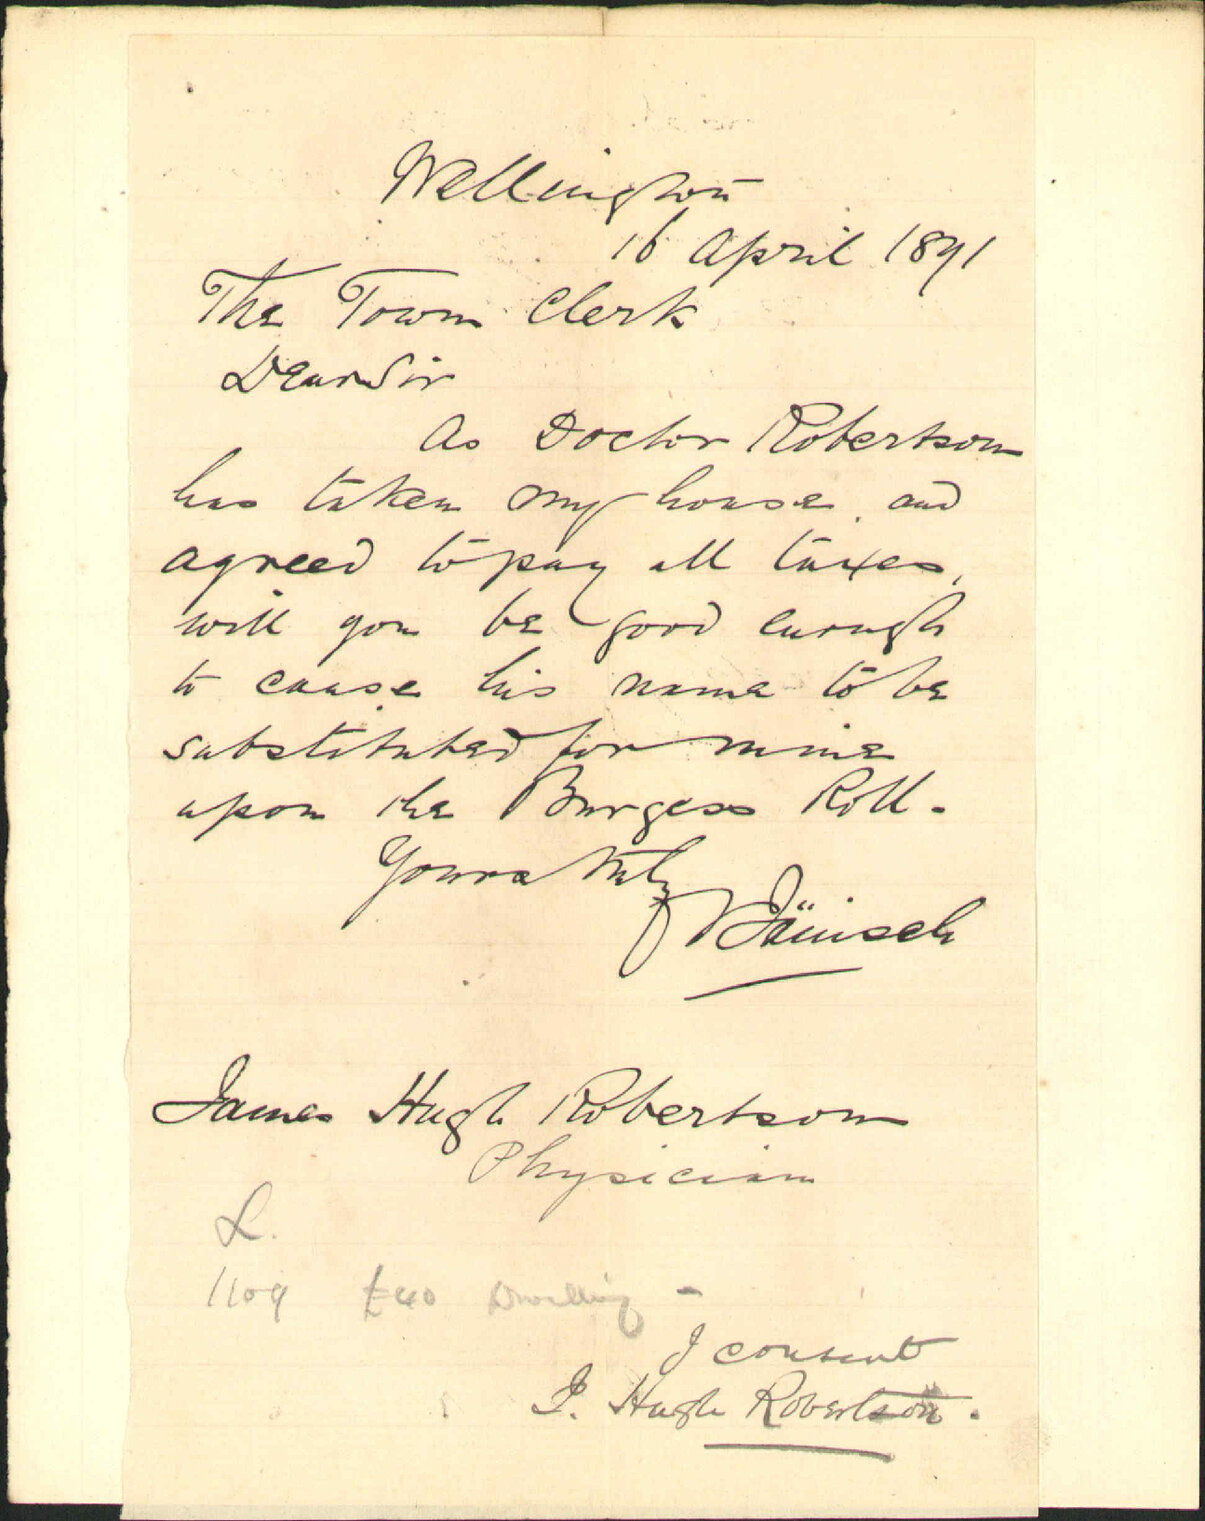 Wellington
16 April 1891
The Town Clerk
Dear Sir
As Doctor Robertson
has taken my house and
agreed to pay all taxes,
will you be good enough
to cause his name to be
substituted for mine
upon the Burgess Roll.
Yours truly
Jänisch
James Hugh Robertson
Physician
L.
1109 £40 Dwelling -
I consent
J. Hugh Robertson.